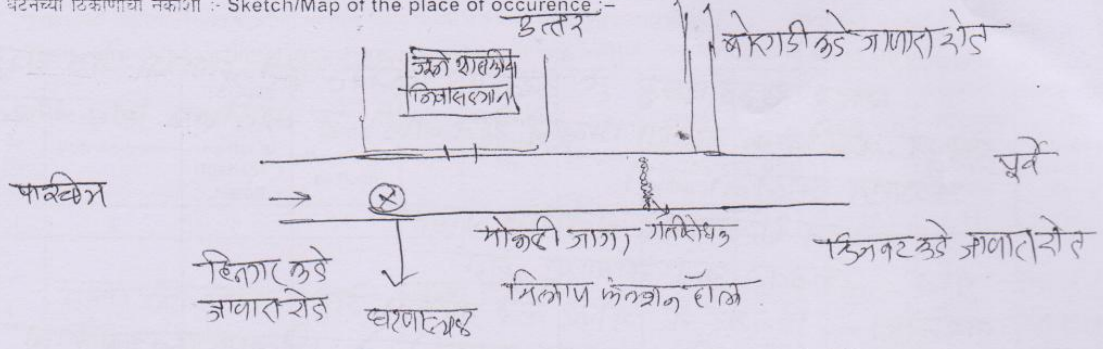 घटनेच्या ठिकाणाचा नकाशा :- Sketch/Map of the place of occurence :–
उत्तर
बोरगडी कडे जाणारा रोड
जुने शासकीय
निवासस्थान
पूर्व
पश्चिम
मोकळी जागा
गतीरोधक
कडे जाणारा रोड
कडे
जाणारा रोड
फंक्शन हॉल
घटनास्थळ